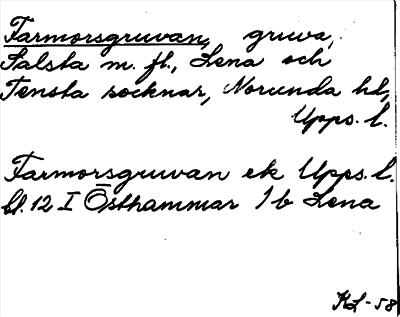 Farmorsgruvan, gruva,
Salsta m. fl., Lena och
Tensta socknar, Norunda hd,
Upps. l.
Farmorsgruvan ek Upps. l.
bl. 12 I Östhammar 1 b Lena
KL-58